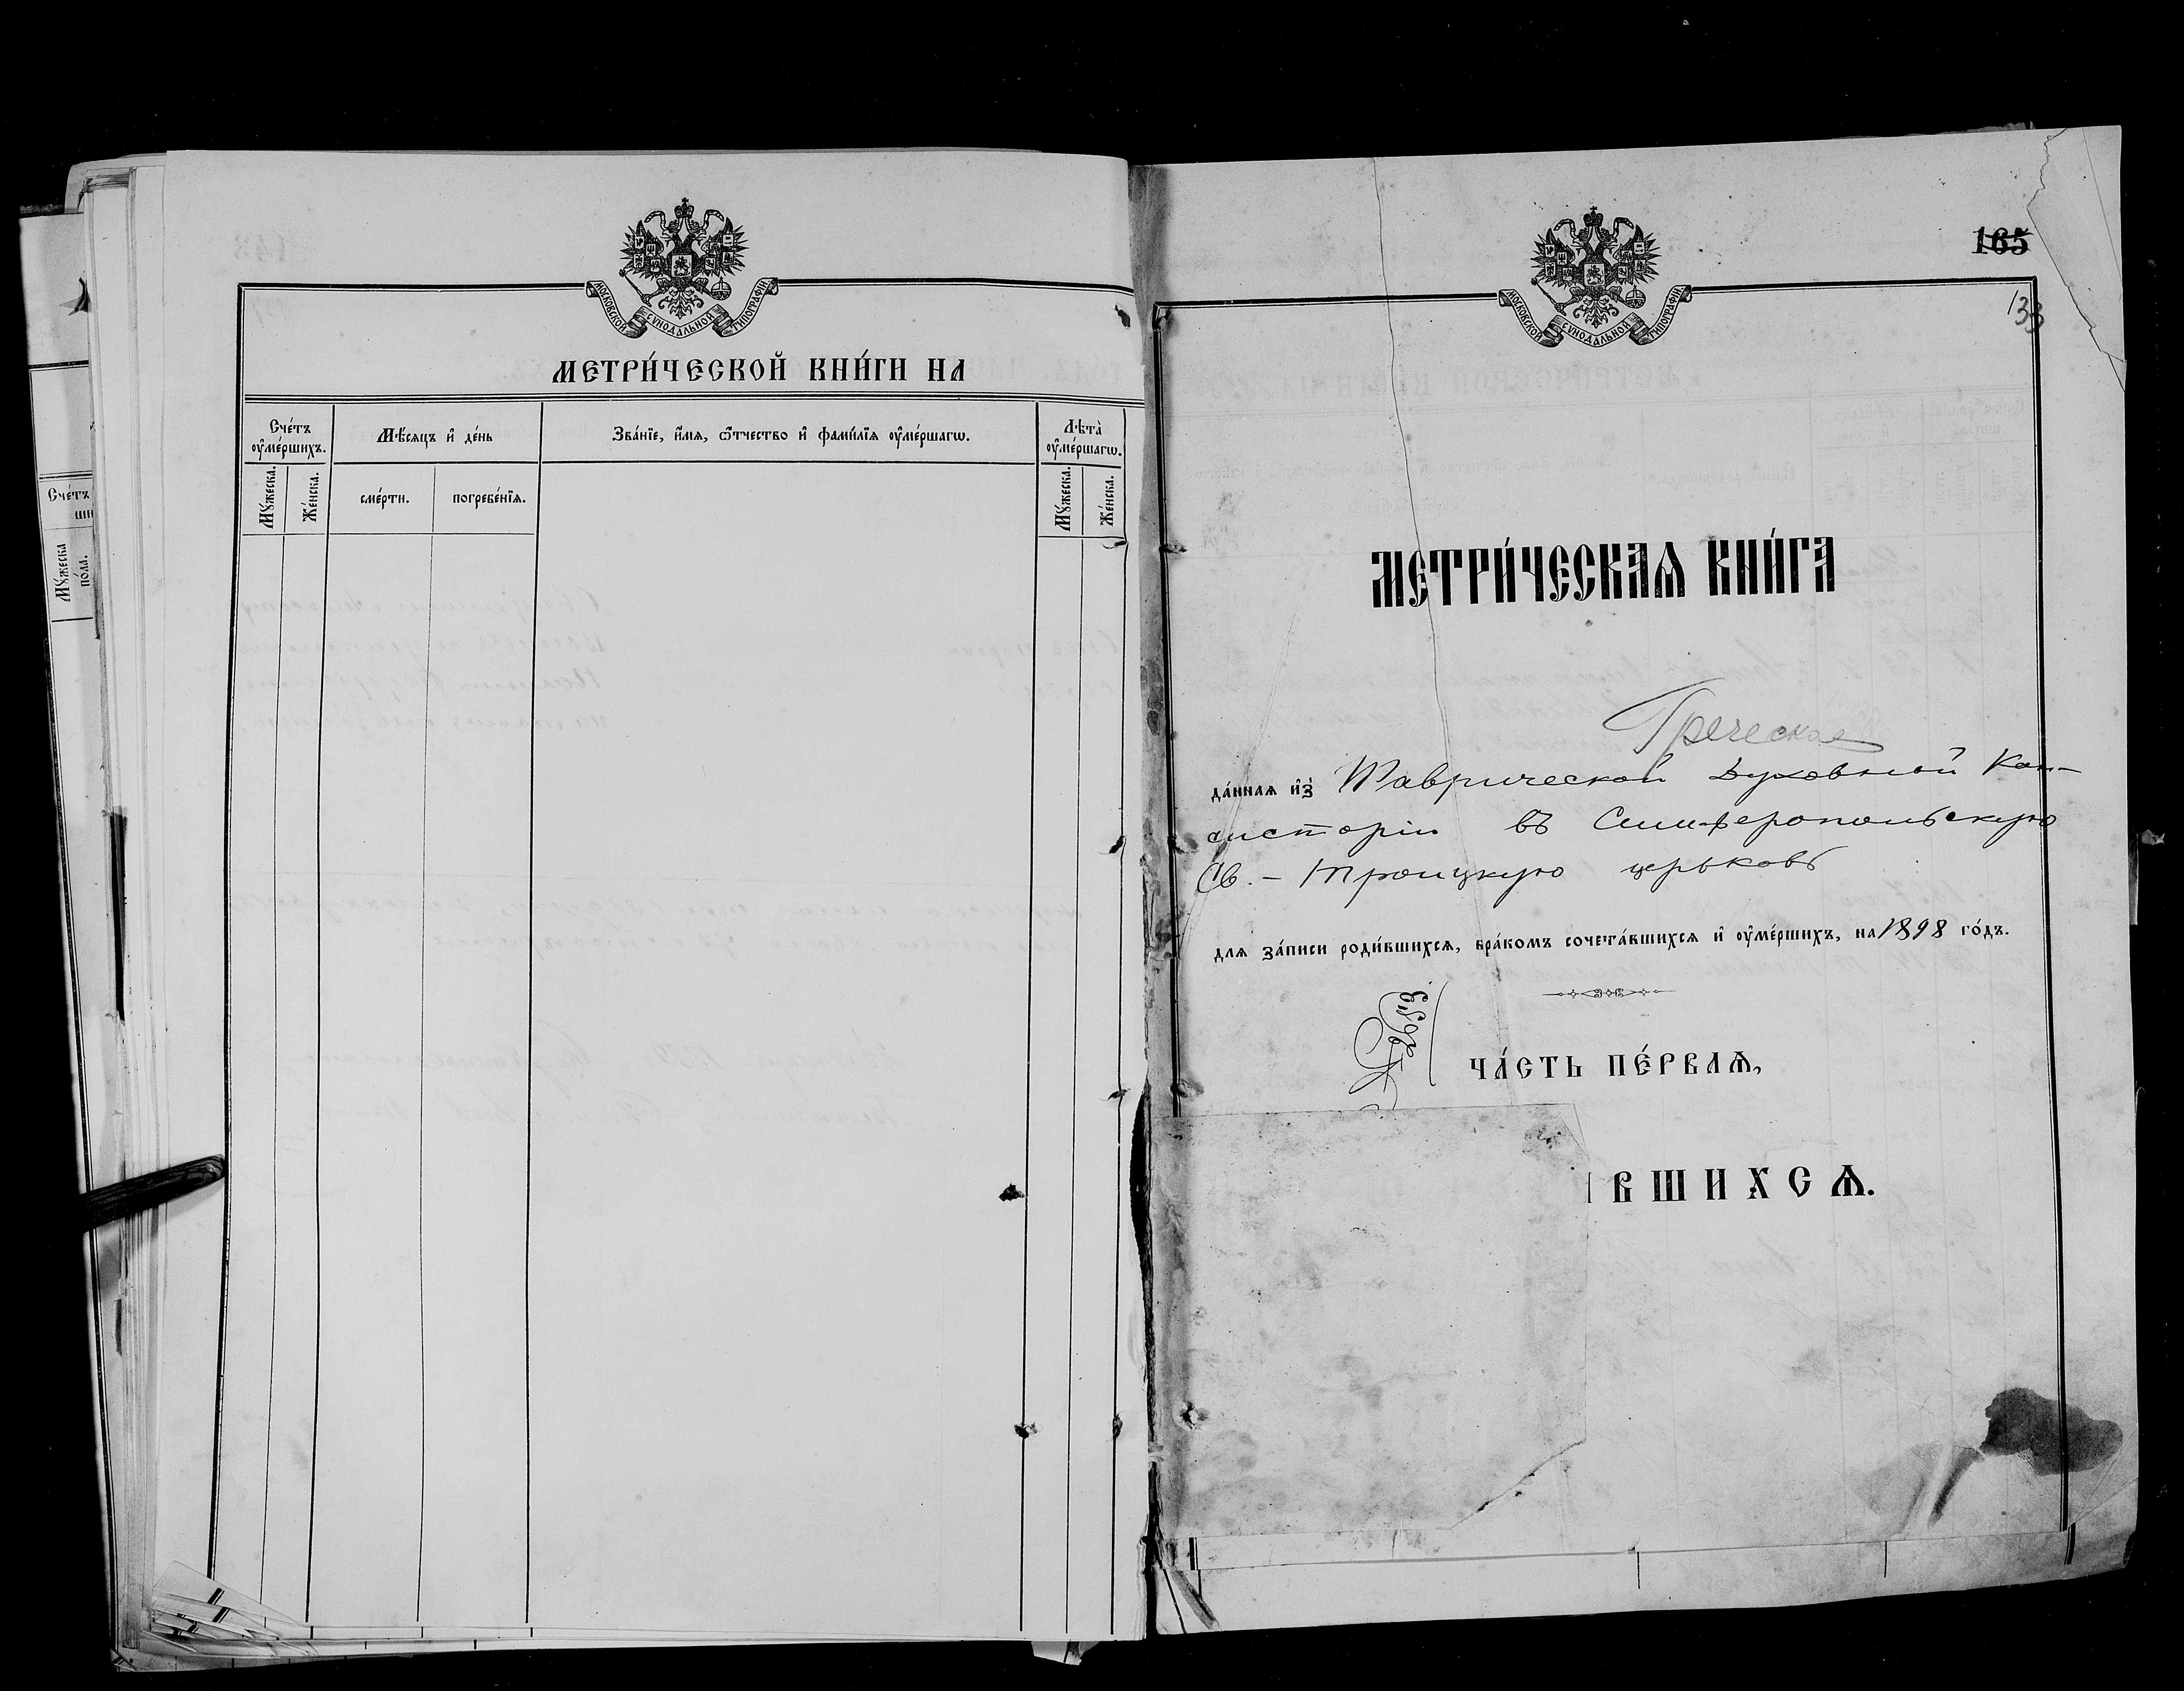 МОСКОВСКОЙ СѴНОДАЛЬНОЙ ТИПОГРАФІИ
МЕТРИ́ЧЕСКОЙ КНИ́ГИ НА
Сче́тъ оу҆ме́ршихъ.
Мѣ́сяцъ и҆ де́нь
Зва́нїе, и҆́мя, ѻ҆́тчество и҆ фамі́лїя оу҆ме́ршагѡ.
Лѣ́та̀ оу҆ме́ршагѡ.
Мꙋ́жеска.
Же́нска.
сме́рти.
погребе́нїя.
Мꙋ́жеска.
Же́нска.
Сче́тъ
Мꙋ́жеска по́ла.
165
133
МОСКОВСКОЙ СѴНОДАЛЬНОЙ ТИПОГРАФІИ
МЕТРИ́ЧЕСКАѦ КНИ́ГА
Греческая
да́ннаѧ и҆з̾ Таврической Духовной Кон-
систоріи въ Симферопольскую
Св.-Троицкую церьковь
длѧ за́писи роди́вшихсѧ, бра́комъ сочета́вшихсѧ и҆ оу҆ме́ршихъ, на 1898 го́дъ.
ЧА́СТЬ ПЕ́РВАѦ,
ВШИХСѦ.